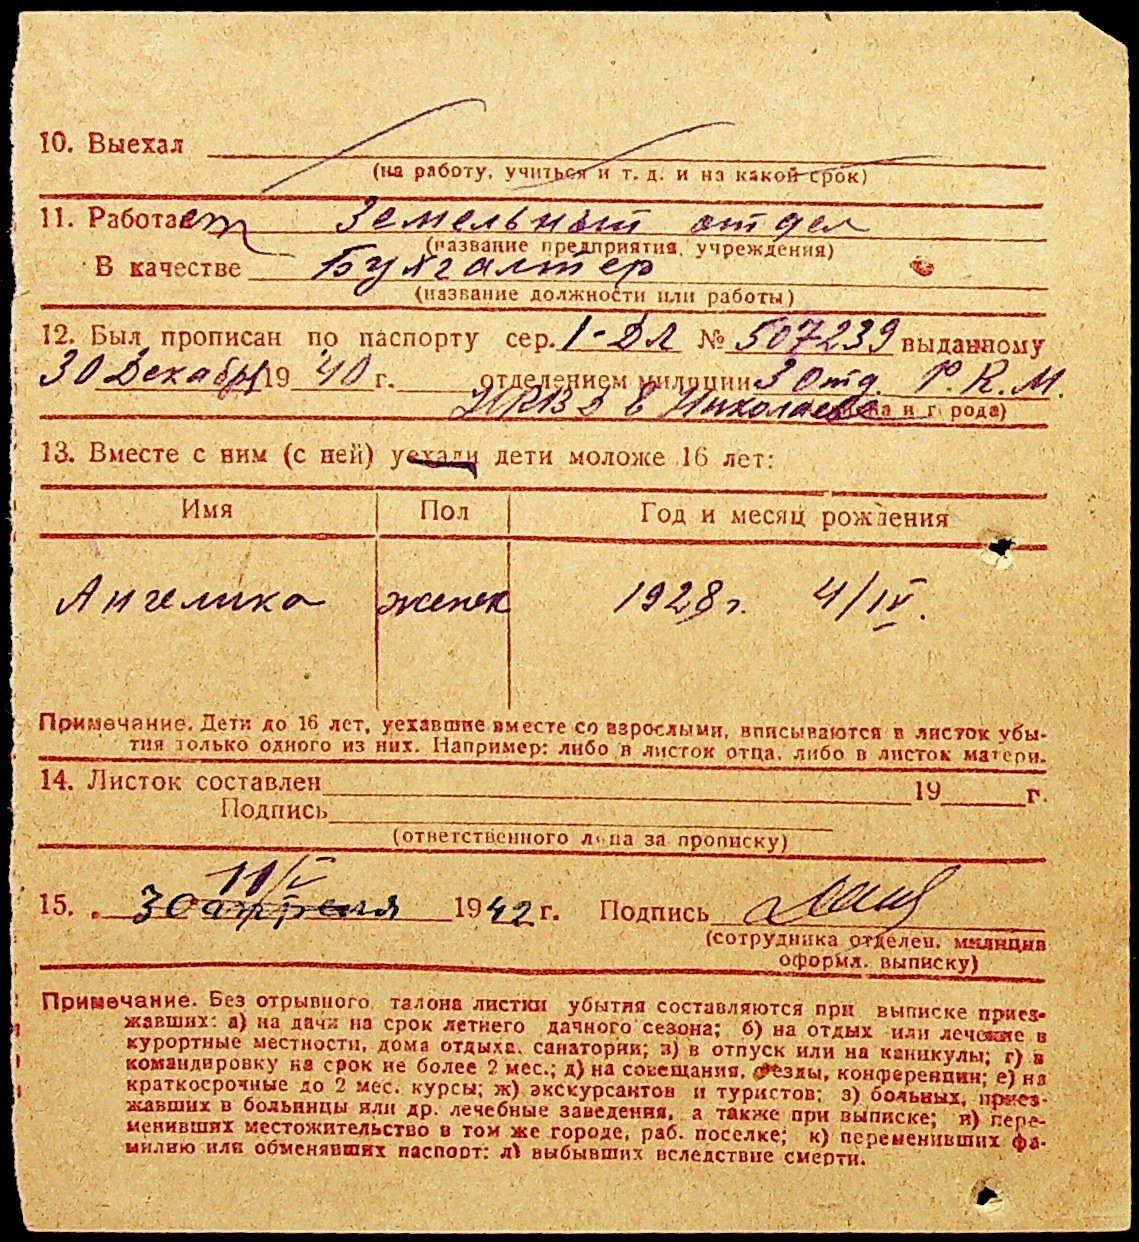 10. Выехал
(на работу, учиться и т. д. и на какой срок)
11. Работает Земельный отдел
(название предприятия, учреждения)
В качестве Бухгалтер
(название должности или работы)
12. Был прописан по паспорту сер. 1-ДЛ № 507239 выданному
30 Декабр 1940 г. отделением милиции 3 отд. Р.К.М.
НКВД в Николаеве и г рода)
13. Вместе с ним (с ней) уехали дети моложе 16 лет:
Имя Пол Год и месяц рождения
Ангелика женск 1928 г. 4/IV.
Примечание. Дети до 16 лет, уехавшие вместе со взрослыми, вписываются в листок убы-
тия только одного из них. Например: либо в листок отца, либо в листок матери.
14. Листок составлен 19 г.
Подпись
(ответственного лица за прописку)
11/V
15. 30 апреля 1942 г. Подпись
(сотрудника отделен. милиции
оформл. выписку)
Примечание. Без отрывного талона листки убытия составляются при выписке приез-
жавших: а) на дачи на срок летнего дачного сезона; б) на отдых или лечение в
курортные местности, дома отдыха, санатории; в) в отпуск или на каникулы; г) в
командировку на срок не более 2 мес.; д) на совещания, съезды, конференции; е) на
краткосрочные до 2 мес. курсы; ж) экскурсантов и туристов; з) больных, приез-
жавших в больницы или др. лечебные заведения, а также при выписке; и) пере-
менивших местожительство в том же городе, раб. поселке; к) переменивших фа-
милию или обменявших паспорт; л) выбывших вследствие смерти.